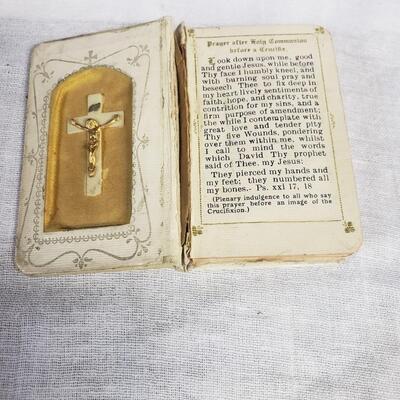 Prayer after Holy Communion
before a Crucifix.
Look down upon me, good
and gentle Jesus, while before
Thy face I humbly kneel, and
with burning soul pray and
beseech Thee to fix deep in
my heart lively sentiments of
faith, hope, and charity, true
contrition for my sins, and a
firm purpose of amendment;
the while I contemplate with
great love and tender pity
Thy five Wounds, pondering
over them within me, whilst
I call to mind the words
which David Thy prophet
said of Thee, my Jesus:
They pierced my hands and
my feet; they numbered all
my bones.- Ps. xxi 17, 18
(Plenary indulgence to all who say
this prayer before an image of the
Crucifixion.)